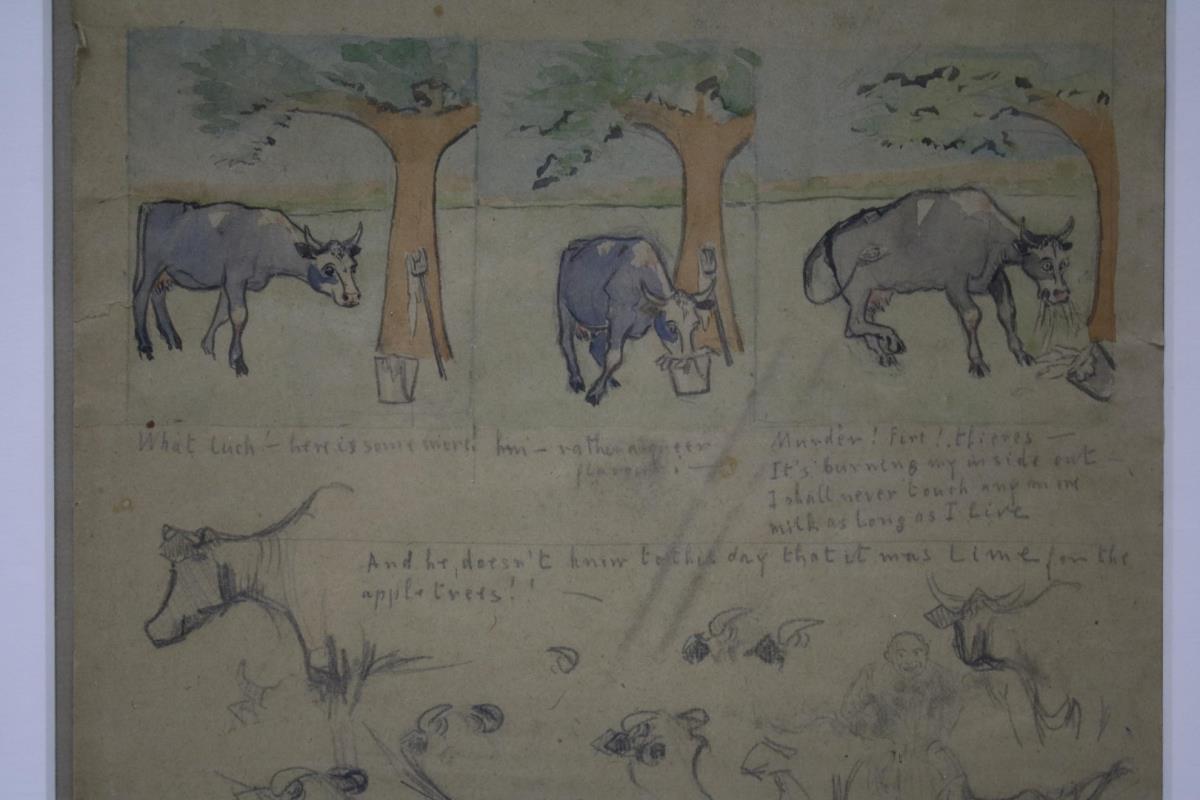 What luck! – here is some more!
hm – rather a queer
flavour! –
Murder! Fire! thieves –
It's burning my inside out –
I shall never touch any more
milk as long as I live
And he doesn't know to this day that it was Lime for the
apple trees!! –